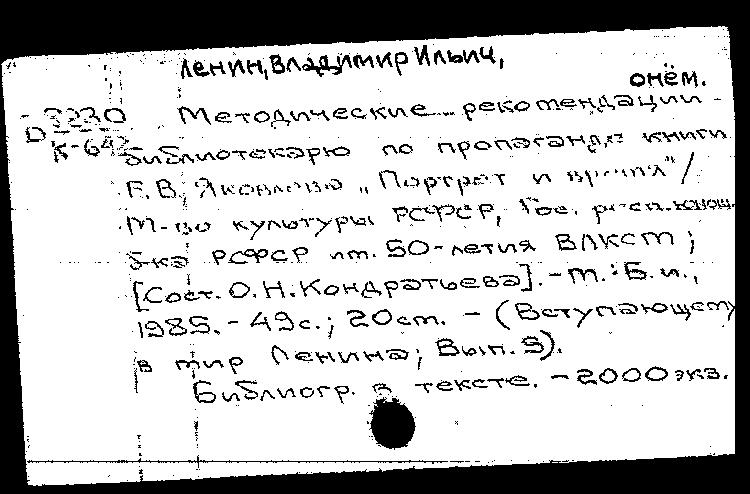 Ленин, Владимир Ильич,
о нём.
D 3230
К-642
Методические рекомендации
библиотекарю по пропаганде книги
Е.В. Яковлева „Портрет и время"/
М-во культуры РСФСР, Гос. респ. юнош.
б-ка РСФСР им. 50-летия ВЛКСМ;
[Сост. О.Н. Кондратьева]. - М.: Б.и.,
1985. - 49 с.; 20 см. - (Вступающему
в мир Ленина; Вып. 9).
Библиогр. в тексте. - 2000 экз.